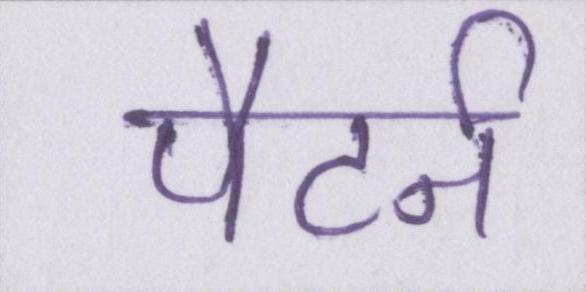 पैटर्न